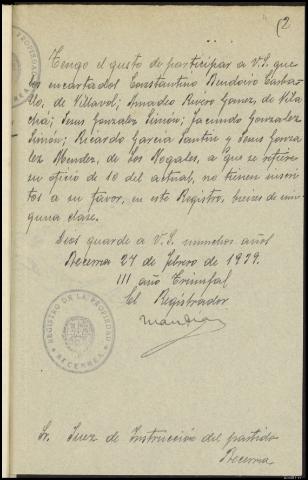 (2
Tengo el gusto de participar a V.S. que
los encartados Constantino Bendoiro Carba-
llo, de Villavol; Amadeo Rivera Gomez, de Vila-
chá; Jesus Gonzalez Simon; Facundo Gonzalez
Simón; Ricardo Garcia Santin y Jesus Gonza
lez Mendez, de Los Nogales, a que se refiere
su oficio de 10 del actual, no tienen inscri
tos a su favor, en este Registro, bienes de nin
guna clase.
Dios guarde a V.S. muchos años
Becerrea 27 de febrero de 1939.
III año Triunfal
El Registrador
REGISTRO DE LA PROPIEDAD
BECERREA
Sr. Juez de Instrucción del partido
Becerrea